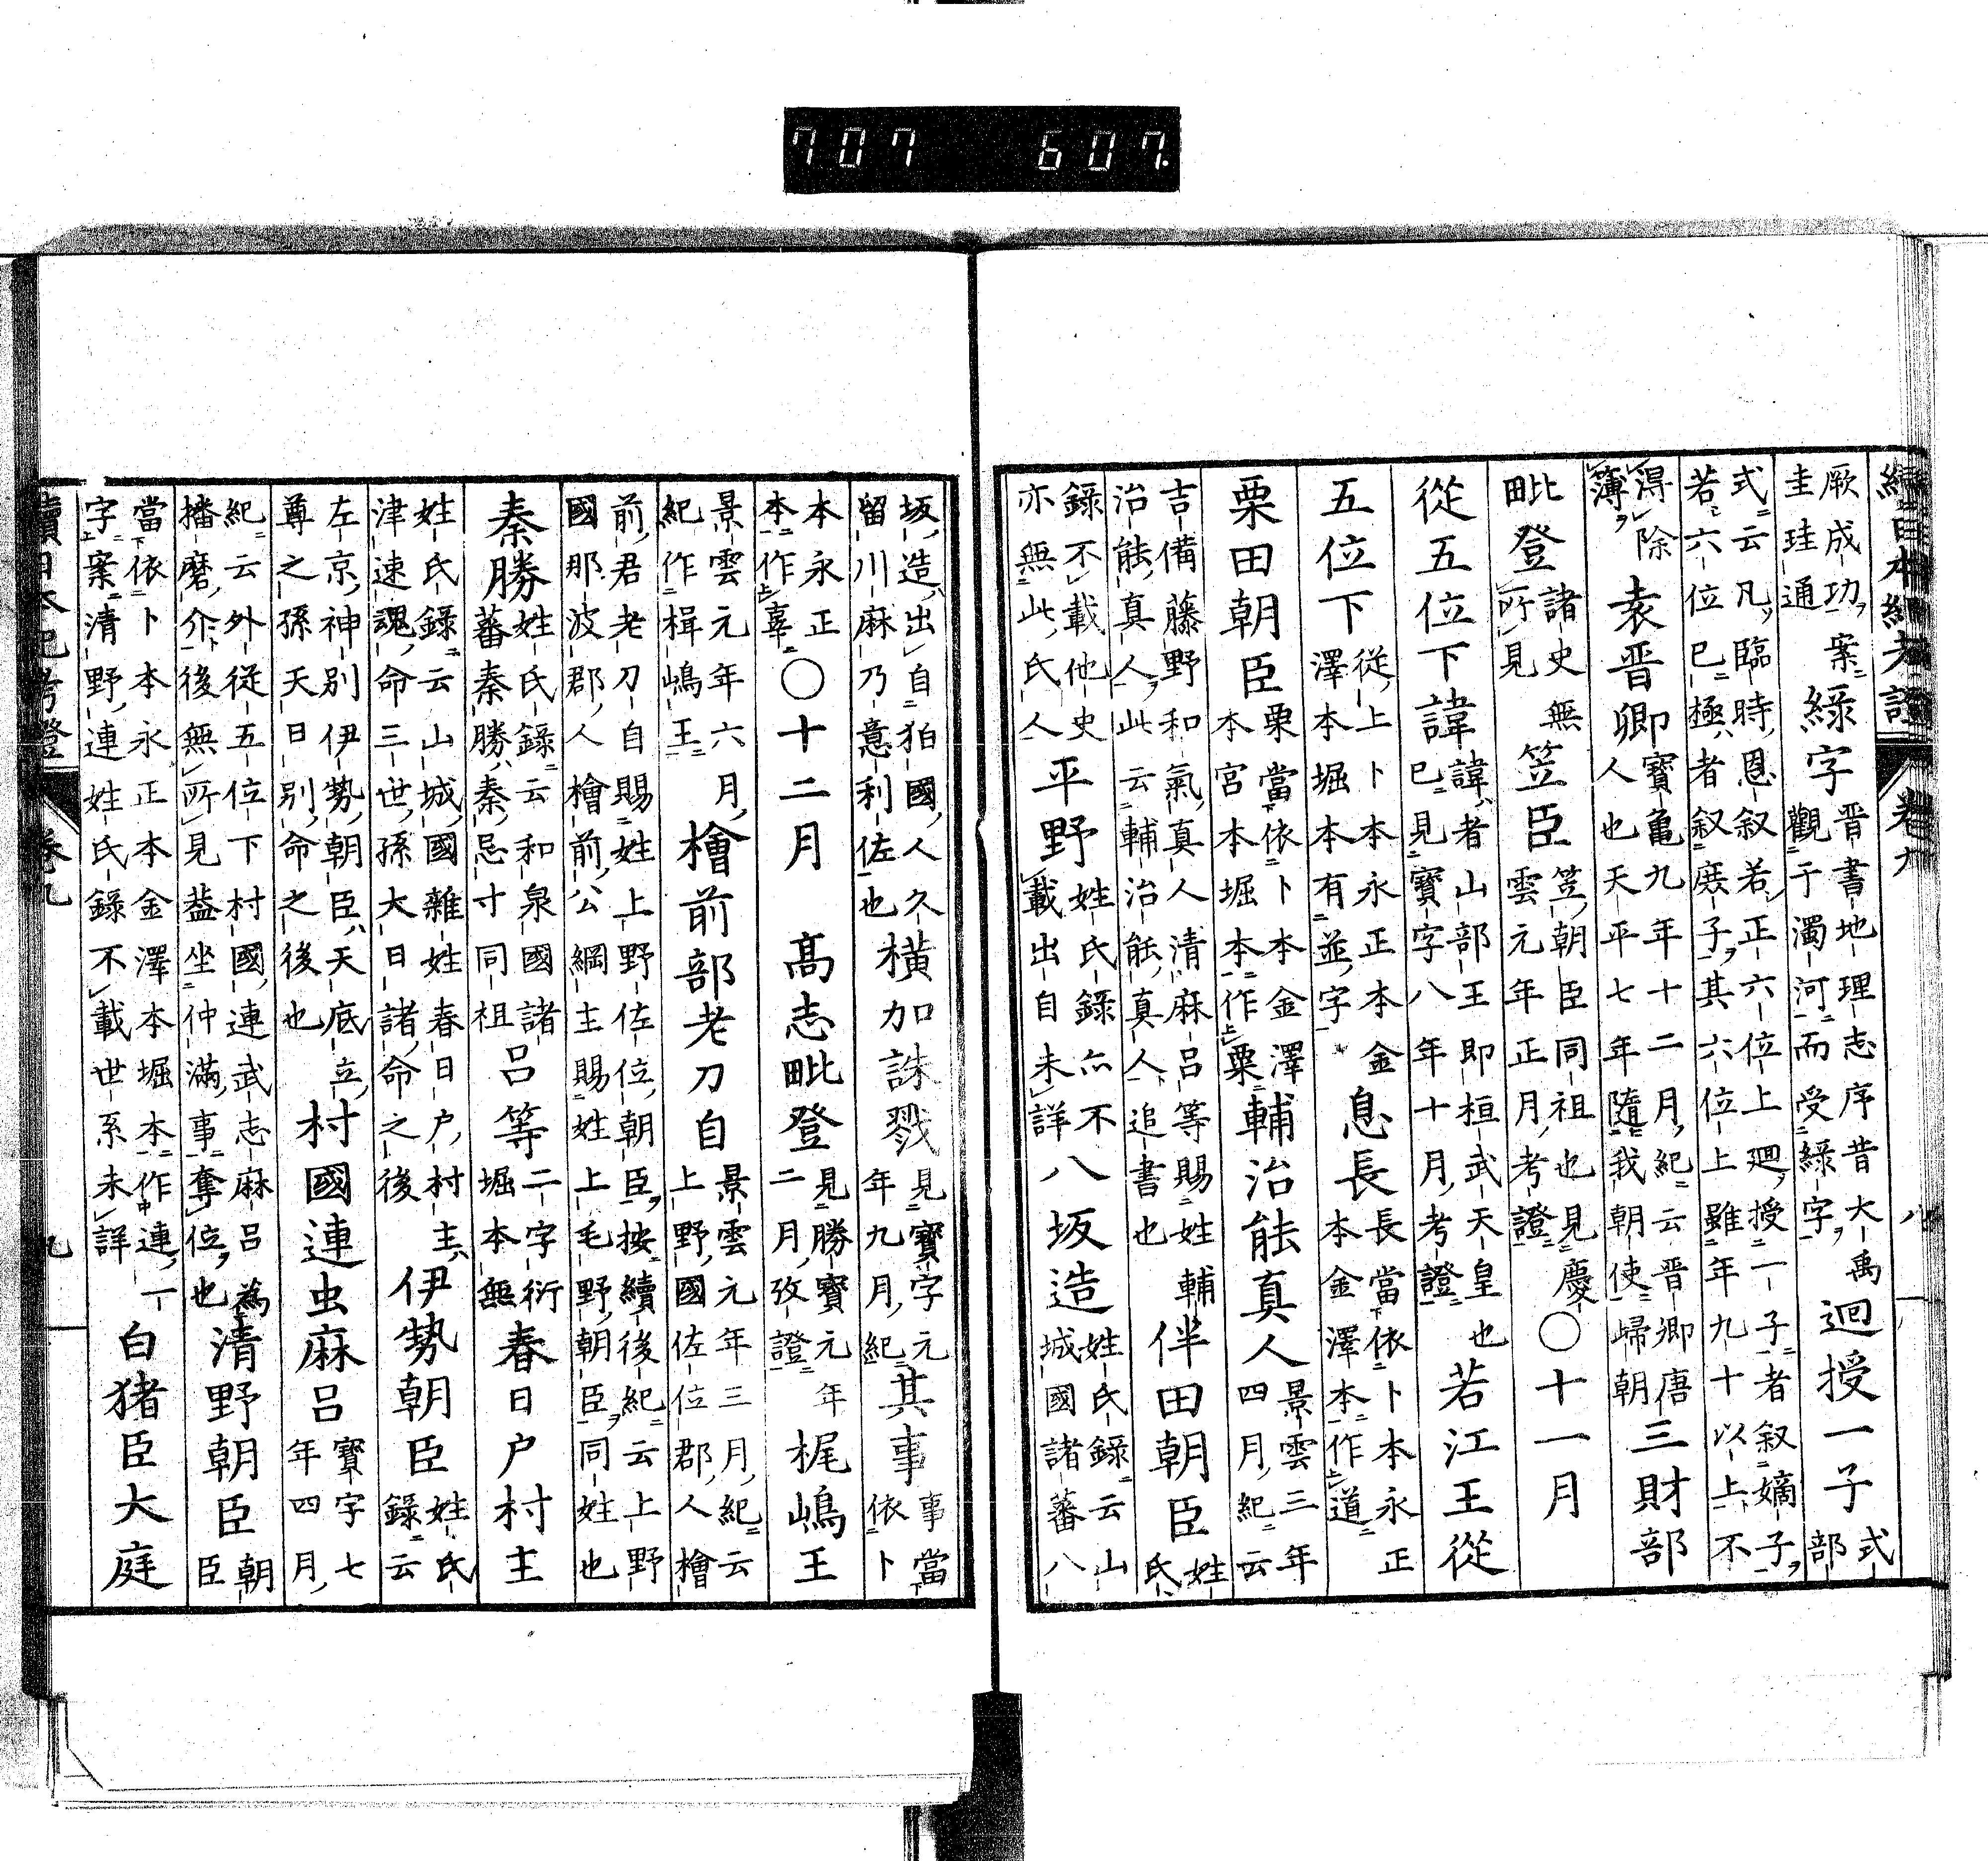 707 607.
續日本紀考證 卷九 八
厥成功、案
圭珪通
綠字
晋書地理志序昔大禹
觀于濁河而受綠字、
迴授一子
式
部
式云凡臨時恩叙若正六位上廻授一子者叙嫡子、
若六位已極者叙庶子其六位上雖年九十以上不
得除
簿
袁晋卿
寶龜九年十二月紀云晋卿唐
人也天平七年隨我朝使歸朝
三財部
毗登
諸史無
所見
笠臣
笠朝臣同祖也見慶
雲元年正月考證
○十一月
從五位下諱
諱者山部王即桓武天皇也
已見寶字八年十月考證
若江王從
五位下
從上卜本永正本金
澤本堀本有並字
息長
長當依卜本永正
本金澤本作道
粟田朝臣
粟當依卜本金澤
本宮本堀本作粟
輔治能真人
景雲三年
四月紀云
吉備藤野和氣真人清麻呂等賜姓輔
治能真人此云輔治能真人追書也
伴田朝臣
姓
氏
錄不載他史
亦無此氏人
平野
姓氏錄亦不
載出自未詳
八坂造
姓氏錄云山
城國諸蕃八
坂造出自狛國人久
留川麻乃意利佐也
橫加誅戮
見寶字元
年九月紀
其事
事當
依卜
本永正
本作辜
○十二月
高志毗登
見勝寶元年
二月攷證
梶嶋王
景雲元年六月
紀作楫嶋王
檜前部老刀自
景雲元年三月紀云
上野國佐位郡人檜
前君老刀自賜姓上野佐位朝臣按續後紀云上野
國那波郡人檜前公綱主賜姓上毛野朝臣同姓也
秦勝
姓氏錄云和泉國諸
蕃秦勝秦忌寸同祖
呂等
二字衍
堀本無
春日户村主
姓氏錄云山城國雜姓春日户村主
津速魂命三世孫大日諸命之後
伊勢朝臣
姓氏
錄云
左京神別伊勢朝臣天底立
尊之孫天日別命之後也
村國連虫麻呂
寶字七
年四月
紀云外從五位下村國連武志麻呂為
播磨介後無所見葢坐仲滿事奪位也
清野朝臣
朝
臣
當依卜本永正本金澤本堀本作連一
字案清野連姓氏錄不載世系未詳
白猪臣大庭
續日本紀考證 卷九 九